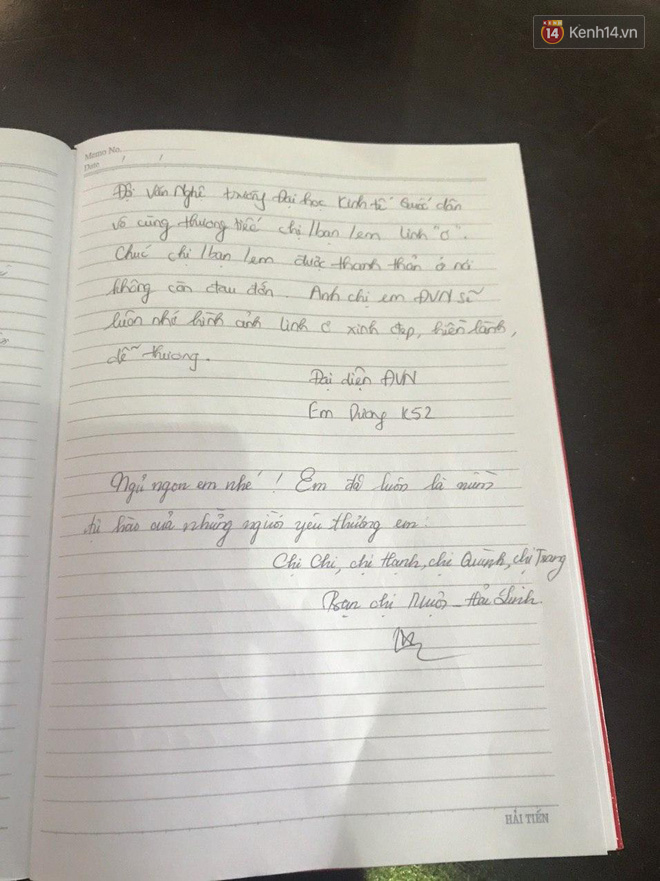 14 Kenh14.vn
Memo No.
Date / /
Đội Văn Nghệ trường Đại học Kinh tế Quốc dân
vô cùng thương tiếc chị/bạn/em Linh "ơ".
Chúc chị/bạn/em được thanh thản ở nơi
không còn đau đớn. Anh chị em ĐVN sẽ
luôn nhớ hình ảnh Linh ơ xinh đẹp, hiền lành,
dễ thương.
Đại diện ĐVN
Em Dương K52
Ngủ ngon em nhé! Em đã luôn là niềm
tự hào của những người yêu thương em.
Chị Chi, chị Hạnh, chị Quỳnh, chị Trang
Bạn chị - Hải Linh
HẢI TIẾN